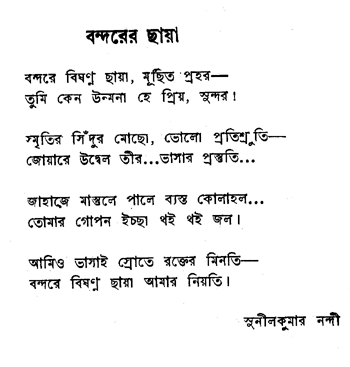 বন্দরের ছায়া
বন্দরে বিষণ্ণ ছায়া, মূর্ছিত প্রহর—
তুমি কেন উন্মনা হে প্রিয়, সুন্দর !
স্মৃতির সিঁদুর মোছো, ভোলো প্রতিশ্রুতি—
জোয়ারে উদ্বেল তীর...ভাসার প্রস্তুতি...
জাহাজে মাস্তুলে পালে ব্যস্ত কোলাহল...
তোমার গোপন ইচ্ছা থই থই জল।
আমিও ভাসাই স্রোতে রক্তের মিনতি—
বন্দরে বিষণ্ণ ছায়া আমার নিয়তি।
সুনীলকুমার নন্দী